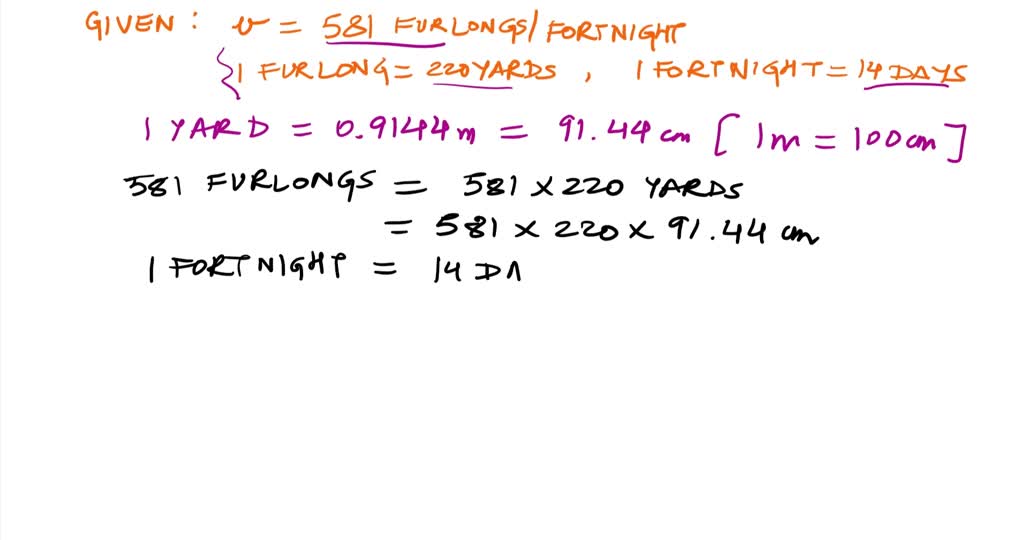 GIVEN : v = 581 FURLONGS/FORTNIGHT
1 FURLONG = 220 YARDS , 1 FORTNIGHT = 14 DAYS
1 YARD = 0.9144 m = 91.44 cm [ 1m = 100 cm ]
581 FURLONGS = 581 × 220 YARDS
= 581 × 220 × 91.44 cm
1 FORTNIGHT = 14 DA